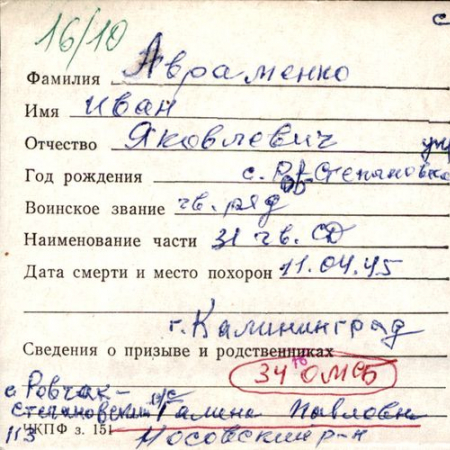 с
16/10
Фамилия Авраменко
Имя Иван
Отчество Яковлевич
Год рождения с. Степановка
Воинское звание гв. ряд
Наименование части 31 гв. СД
Дата смерти и место похорон 11.04.45
г. Калининград
Сведения о призыве и родственниках
34 ОМСБ
с Ровчак-
Степановский Галина Павловн
ЧКПФ з. 151
113 Носовский р-н